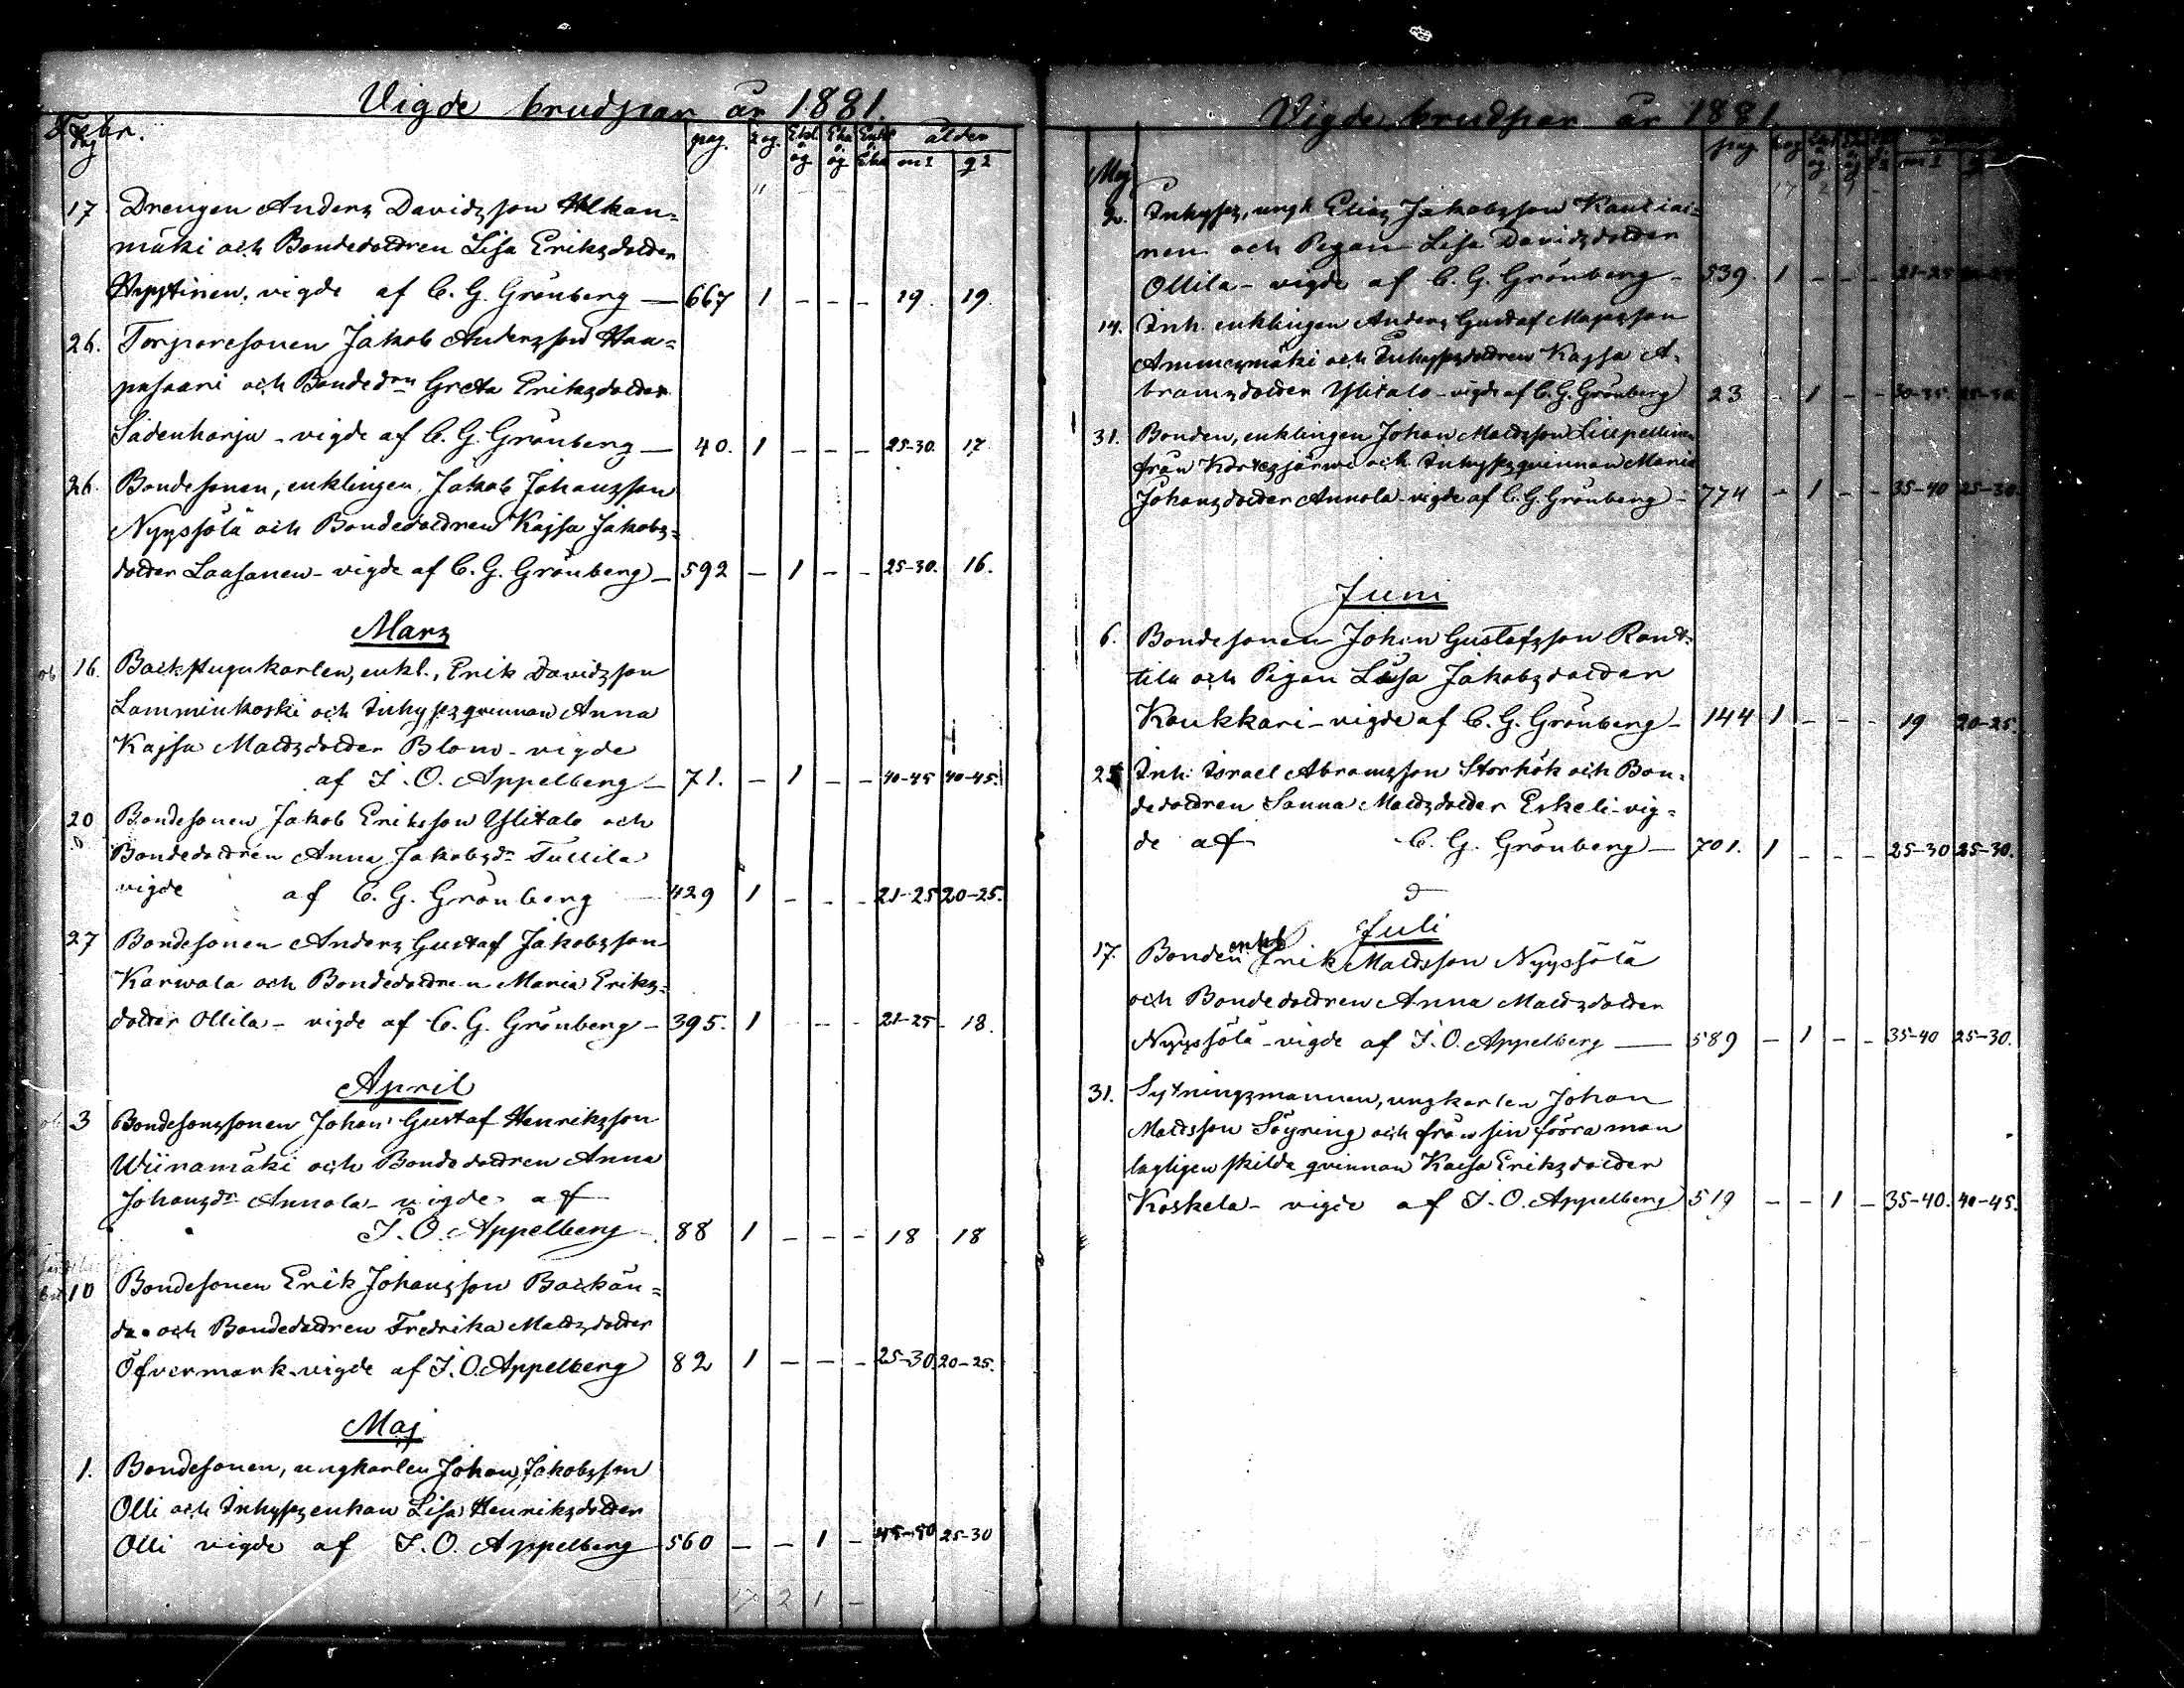 Vigde brudpar år 1881.
Febr.
Dag pag. 2 og. Enkl. o. og Eka o. og Enkl o. Eka ålder
m k q k
17 Drengen Anders Davidsson Alkan=
mäki och Bondedottren Lisa Eriksdotter
vigde af C. G. Grönberg — 667 1 – – – 19. 19.
26. Torparesonen Jakob Andersson Haa=
pasaari och Bondedrn Greta Eriksdotter
Sadenharju – vigde af C. G. Grönberg — 40. 1 – – – 25-30. 17
26. Bondesonen, enklingen, Jakob Johansson
Nyyssölä och Bondedottren Kajsa Jakobs=
dotter Laasanen – vigde af C. G. Grönberg – 592 – 1 – – 25-30. 16.
Mars
16. Backstugukarlen, enkl., Erik Davidsson
Lamminkoski och Inhyseqvinnan Anna
Kajsa Mattsdotter Blom – vigde
af J. O. Appelberg – 71. – 1 – – 40-45 40-45.
20 Bondesonen Jakob Eriksson Ylitalo och
Bondedottren Anna Jakobsdr Tullila
vigde af C. G. Grönberg — 429 1 – – – 21-25 20-25.
27 Bondesonen Anders Gustaf Jakobsson
Karwala och Bondedottren Maria Eriks=
dotter Ollila – vigde af C. G. Grönberg – 395. 1 – – 21-25 18.
April
3 Bondesonssonen Johan Gustaf Henriksson
Wiinamäki och Bondedottren Anna
Johansdr Annala – vigde af
J. O. Appelberg – 88 1 – – – 18 18
10 Bondesonen Erik Johansson Backän=
da och Bondedottren Fredrika Mattsdotter
Öfvermark – vigde af J. O. Appelberg 82 1 – – – 25-30. 20-25.
Maj
1. Bondesonen, ungkarlen Johan Jakobsson
Olli och Inhysesenkan Lisa Henriksdotter
Olli vigde af J. O. Appelberg 560 – – 1 – 45-50 25-30
17 2 1 –
Vigde brudpar år 1881.
Maj pag.
2. Inhyses, ungk Elias Jakobsson Kautiai=
nen och Pigan Lisa Davidsdotter
Ollila – vigde af C. G. Grönberg – 539. 1 – – – 21-25
14. Inh. enklingen Anders Gustaf Majasson
Ammesmäki och Inhysesdottren Kajsa A=
bramsdotter Ylitalo – vigde af C. G. Grönberg 23 – 1 – – 30-35. 25-30
31. Bonden, enklingen Johan Mattsson
från Kortesjärwi och Inhysesqvinnan Maria
Johansdotter Annola – vigde af C. G. Grönberg – 774 – 1 – – 35-40 25-30.
Juni
6. Bondesonen Johan Gustafsson Rant=
tila och Pigan Lisa Jakobsdotter
Koukkari – vigde af C. G. Grönberg – 144 1 – – – 19 20-25.
25 Inh. Israel Abramsson Storhök och Bon=
dedottren Sanna Mattsdotter Eskeli – vig=
de af C. G. Grönberg — 701. 1 – – – 25-30 25-30.
Juli
17. Bonden enkl Erik Mattsson Nyyssölä
och Bondedottren Anna Mattsdotter
Nyyssölä – vigde af J. O. Appelberg — 589 – 1 – – 35-40 25-30.
31. Sytningsmannen, ungkarlen Johan
Mattsson Söyring och från sin förra man
lagligen skilda qvinnan Kaisa Eriksdotter
Koskela – vigde af J. O. Appelberg 519 – – 1 – 35-40. 40-45.